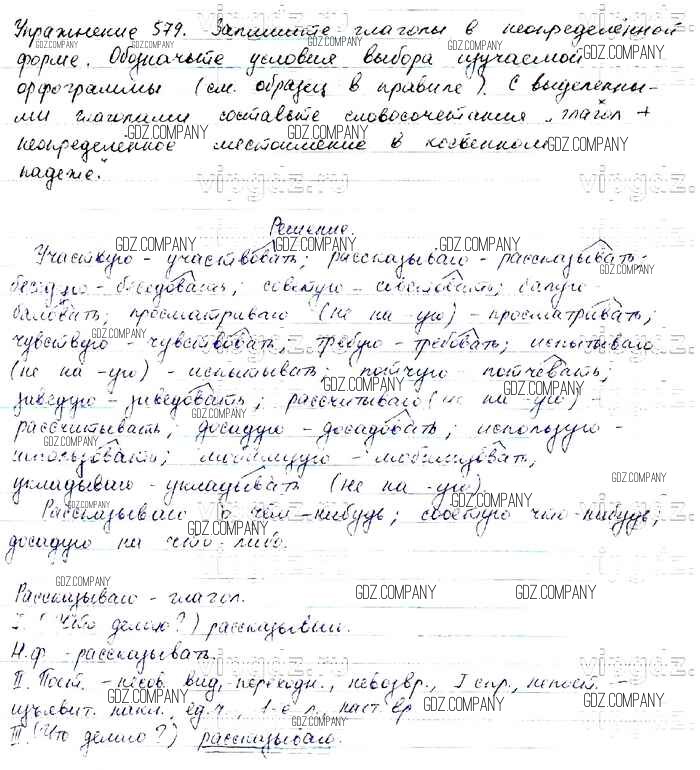 Упражнение 579. Запишите глаголы в неопределённой
форме. Обозначьте условия выбора изучаемой
орфограммы (см. образец в правиле). С выделенны-
ми глаголами составьте словосочетания „глагол +
неопределённое местоимение в косвенном
падеже."
Решение.
Участвую - участвовать; рассказываю - рассказывать;
беседую - беседовать; советую - советовать; балую -
баловать; просматриваю (не на -ую) - просматривать;
чувствую - чувствовать; требую - требовать; испытываю
(не на -ую) - испытывать; потчую - потчевать;
заведую - заведовать; рассчитываю (не на -ую) -
рассчитывать; досадую - досадовать; использую -
использовать; мобилизую - мобилизовать;
укладываю - укладывать (не на -ую).
Рассказываю о чём-нибудь; советую что-нибудь;
досадую на что-либо.
Рассказываю - глагол.
I. (Что делаю?) рассказываю.
Н.ф. - рассказывать.
II. Пост. - несов. вид, переходн., невозвр., I спр., непост. -
изъявит. накл., ед.ч., 1-е л., наст. вр.
III. (Что делаю?) рассказываю.